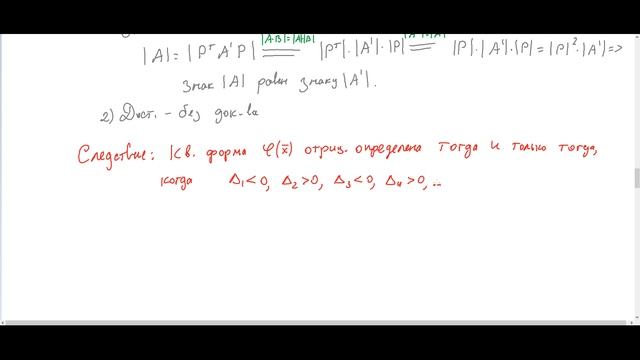 |AB|=|A||B|
|A| = |Pᵀ A' P| = |Pᵀ|·|A'|·|P| = |P|·|A'|·|P| = |P|²·|A'| =>
знак |A| равен знаку |A'|.
2) Дост. – без док-ва
Следствие: Кв. форма φ(x̄) отриц. определена тогда и только тогда,
когда Δ₁ < 0, Δ₂ > 0, Δ₃ < 0, Δ₄ > 0, ...